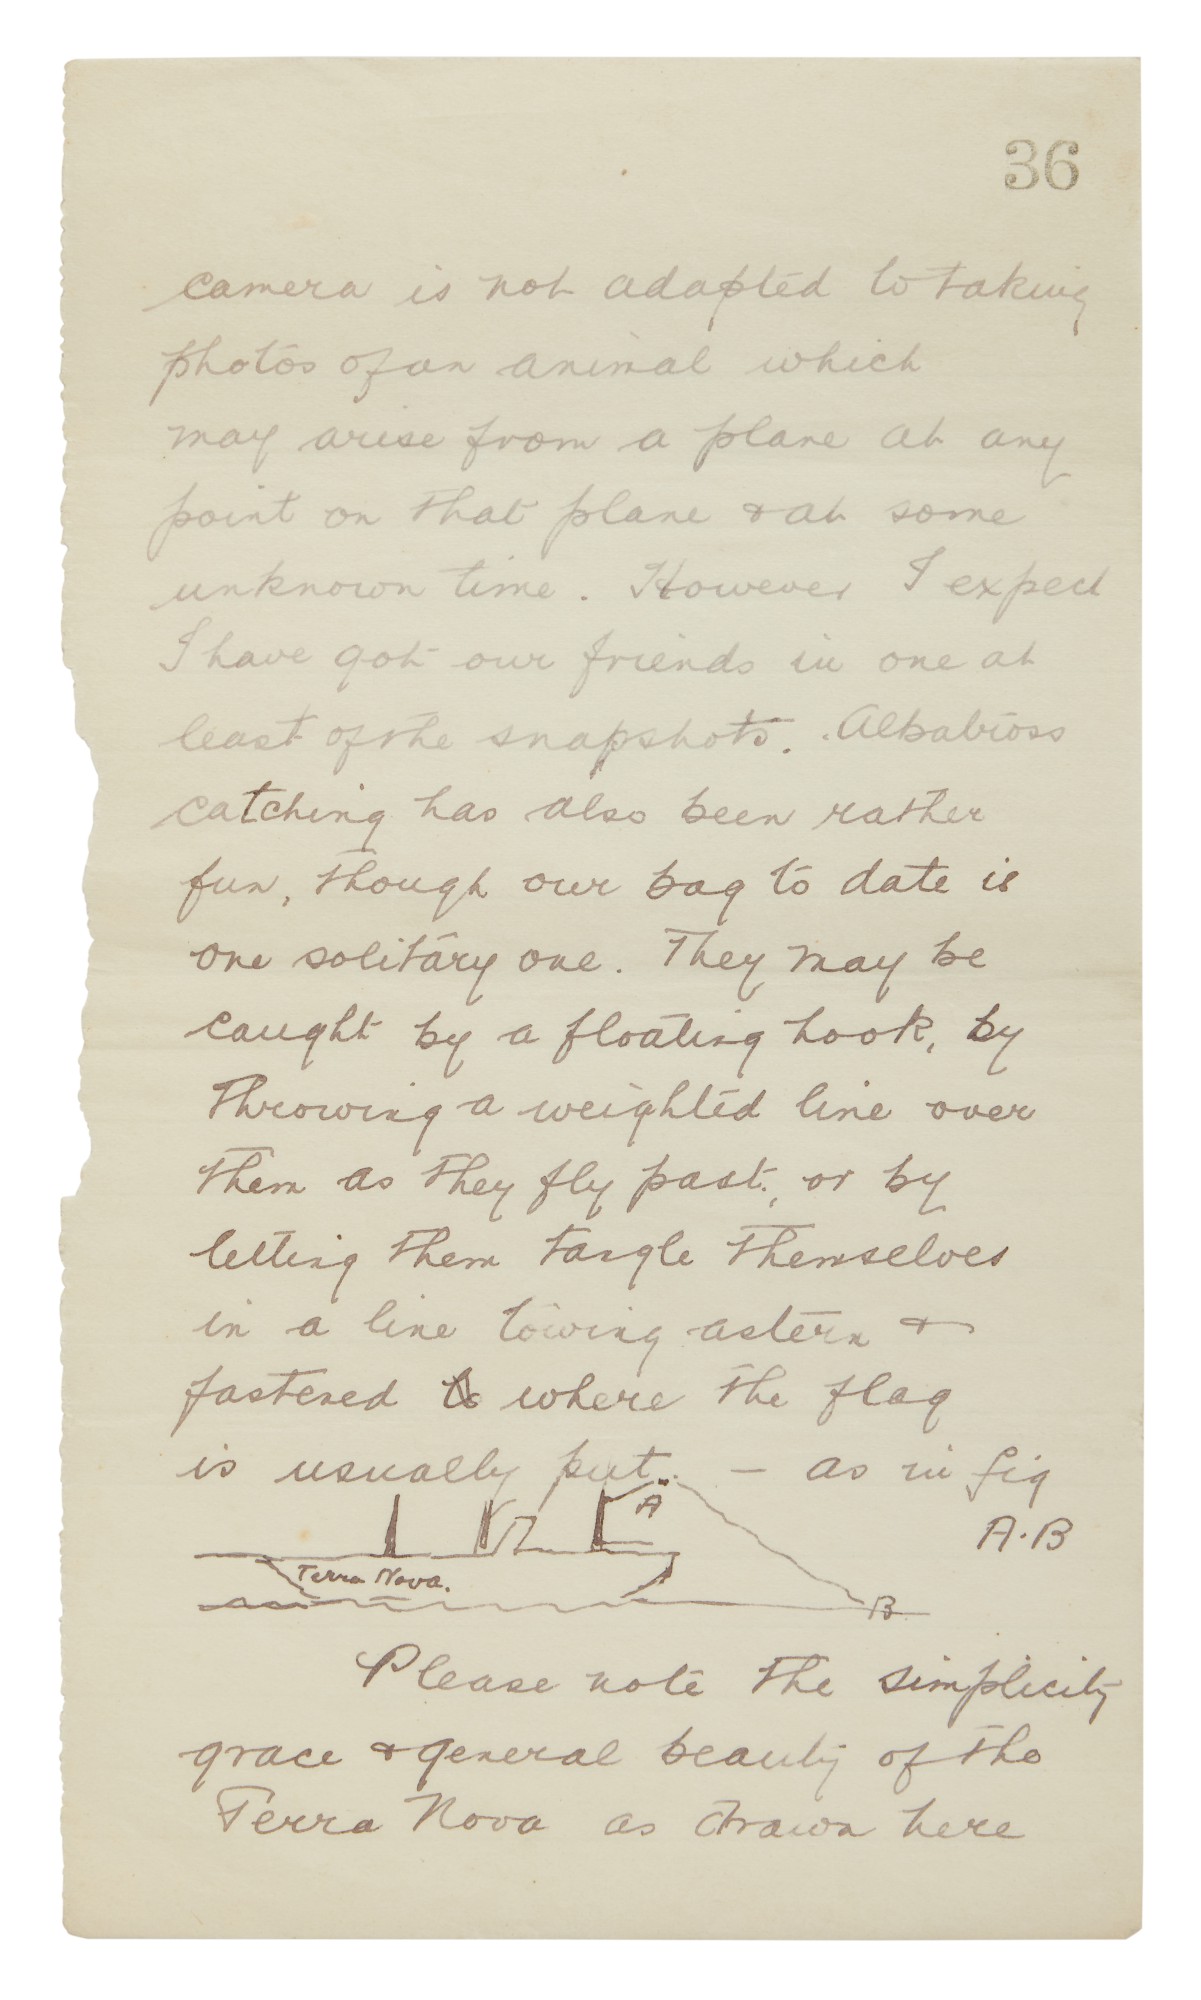 36
camera is not adapted to taking
photos of an animal which
may arise from a plane at any
point on that plane & at some
unknown time. However I expect
I have got our friends in one at
least of the snapshots. Albatross
catching has also been rather
fun, though our bag to date is
one solitary one. They may be
caught by a floating hook, by
throwing a weighted line over
them as they fly past, or by
letting them tangle themselves
in a line towing astern &
fastened to where the flag
is usually put. — as in fig
A
A.B
Terra Nova.
B
Please note the simplicity
grace & general beauty of the
Terra Nova as drawn here